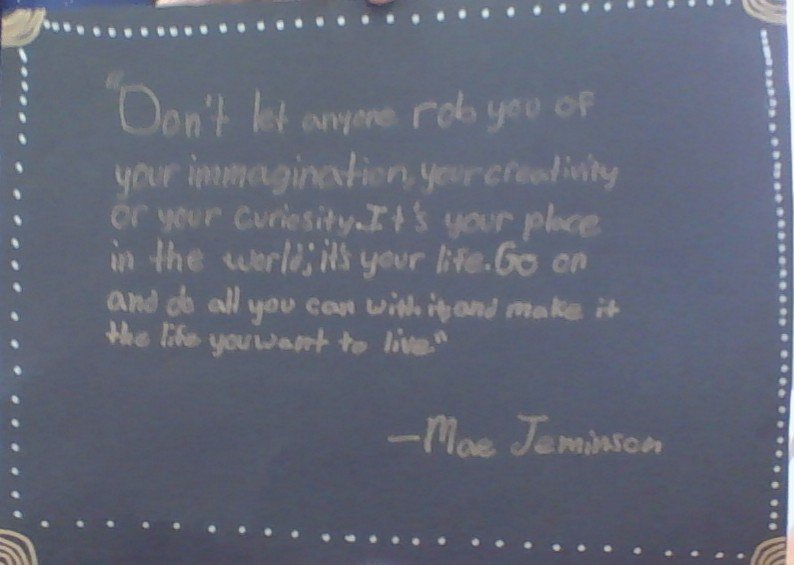 "Don't let anyone rob you of
your immagination, your creativity
or your curiosity. It's your place
in the world; it's your life. Go on
and do all you can with it, and make it
the life you want to live."
—Mae Jeminson